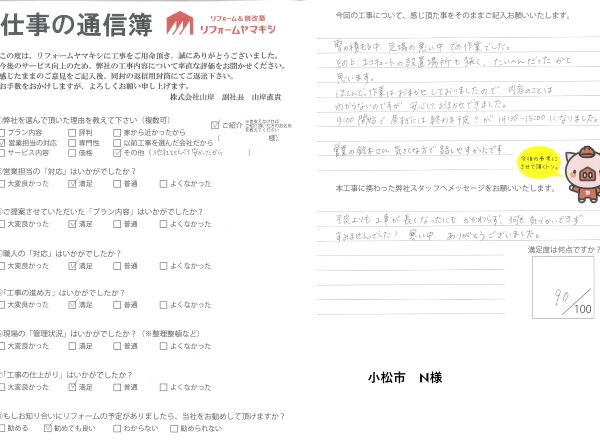 仕事の通信簿
リフォーム&増改築
リフォームヤマキシ
この度は、リフォームヤマキシに工事をご用命頂き、誠にありがとうございました。
今後のサービス向上のため、弊社の工事内容について率直な評価をお聞かせください。
感じたままのご意見をご記入後、同封の返信用封筒にてご返送下さい。
お手数をおかけしますが、よろしくお願い申し上げます。
株式会社山岸 副社長 山岸直貴
弊社を選んで頂いた理由を教えて下さい(複数可)
ご紹介
(様)
プラン内容 評判 家から近かったから
営業担当の対応 専門性 以前工事を頼んだ会社だから
サービス内容 価格 その他
営業担当の「対応」はいかがでしたか?
大変良かった 満足 普通 よくなかった
ご提案させていただいた「プラン内容」はいかがでしたか?
大変良かった 満足 普通 よくなかった
職人の「対応」はいかがでしたか?
大変良かった 満足 普通 よくなかった
「工事の進め方」はいかがでしたか?
大変良かった 満足 普通 よくなかった
現場の「管理状況」はいかがでしたか?(※整理整頓など)
大変良かった 満足 普通 よくなかった
「工事の仕上がり」はいかがでしたか?
大変良かった 満足 普通 よくなかった
もしお知り合いにリフォームの予定がありましたら、当社をお勧めして頂けますか?
勧める 勧めても良い わからない 勧められない
今回の工事について、感じた事をそのままご記入お願いいたします。
雪の積もる中、足場の悪い中での作業でした。
その上、エコキュートの設置場所も狭く、たいへんだったかと
思います。
ほとんど、作業はおまかせしておりましたので 内容のことは
わからないのですが 安心しておまかせできました。
9:00開始で 昼前には終わる予定? が 14:30~15:00になりました。
営業の鈴木さん 気さくな方で 話しやすかったです
今後の参考にさせて頂くトン。
本工事に携わった弊社スタッフへメッセージをお願いいたします。
予定よりも工事が長くなったにもかかわらず、何も気づかいできず
すみませんでした! 寒い中、ありがとうございました。
満足度は何点ですか?
90/100
小松市 N様